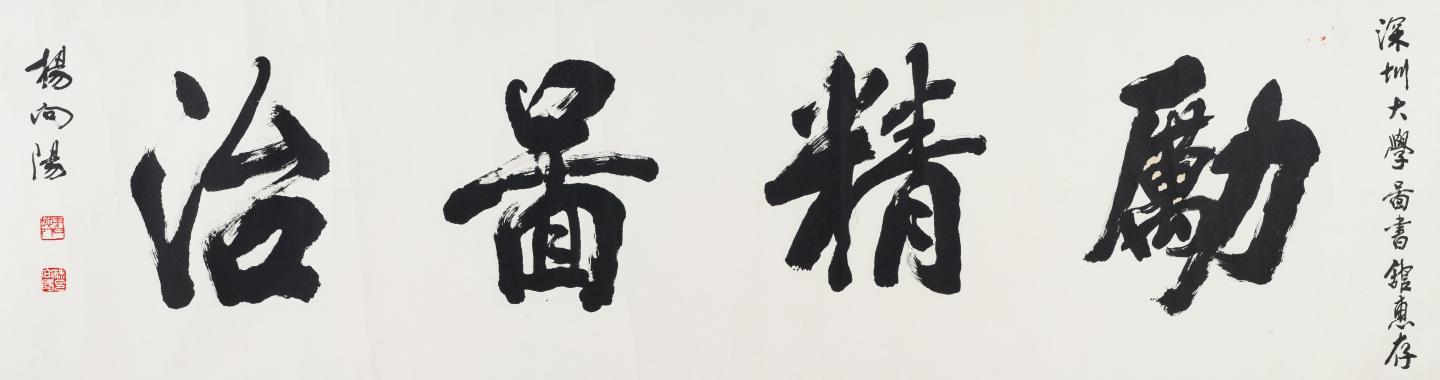 深圳大學啚書館惠存
勵精啚治
楊向陽